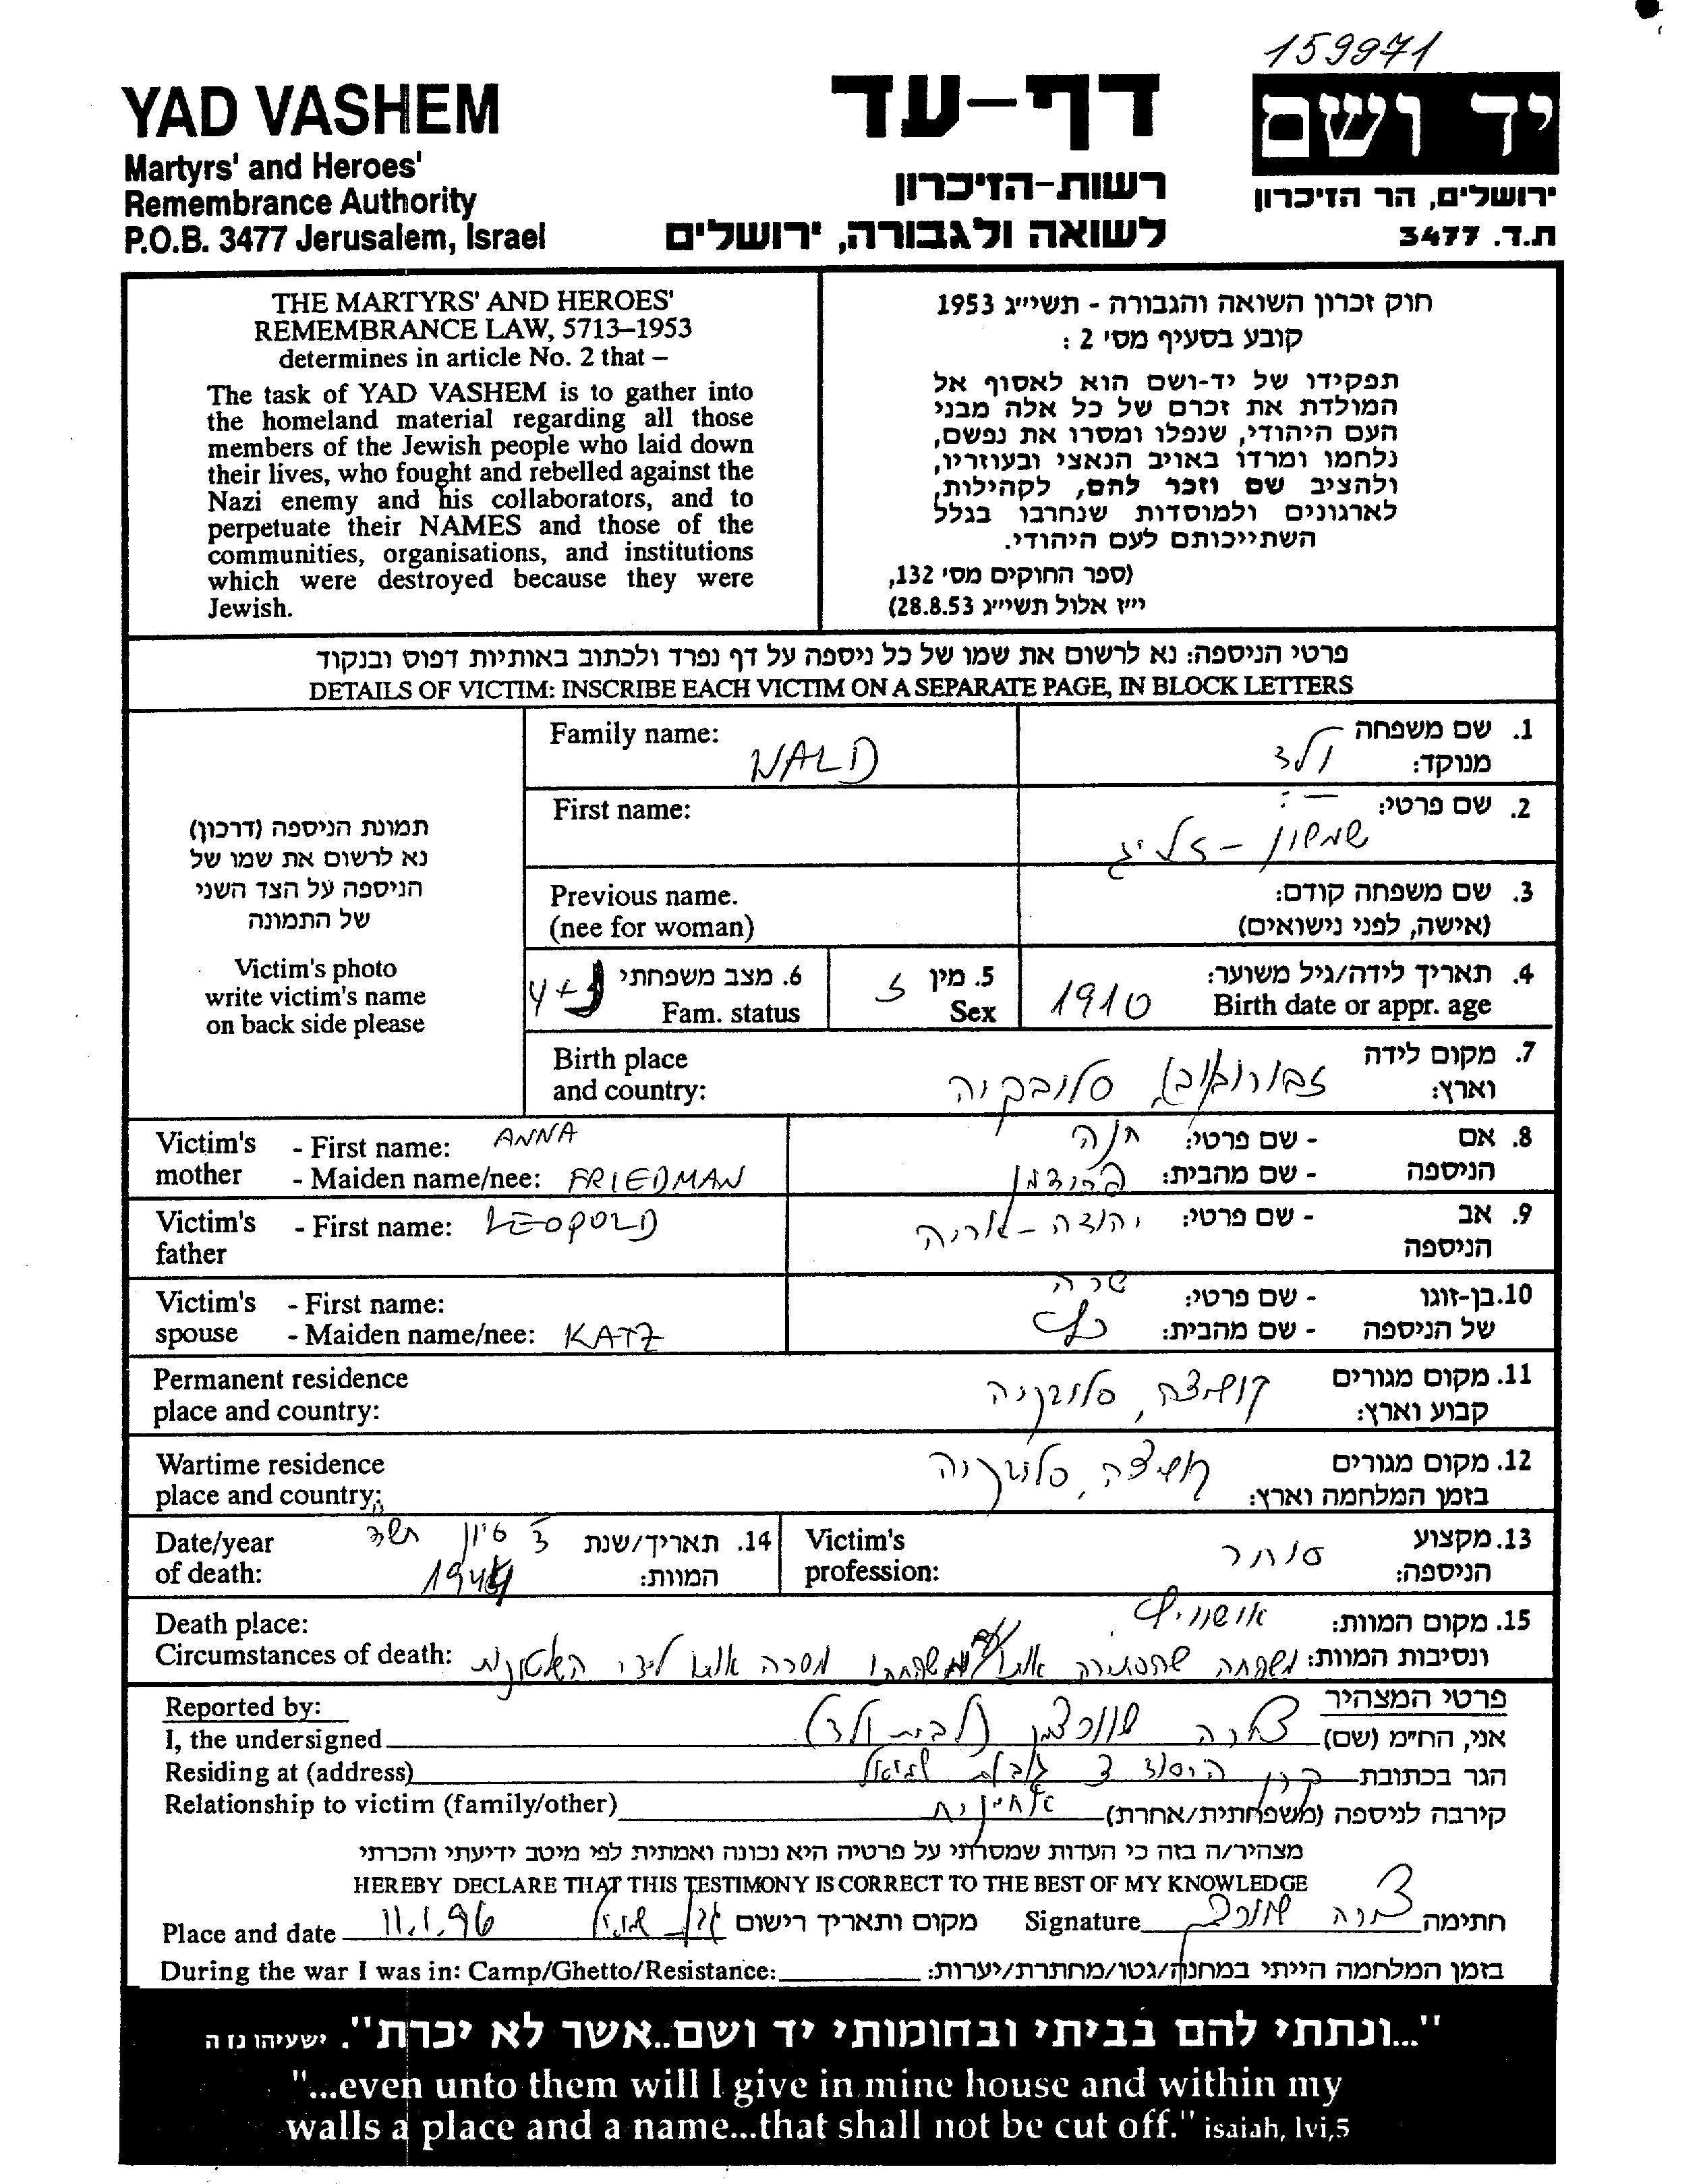 159971
YAD VASHEM
Martyrs' and Heroes'
Remembrance Authority
P.O.B. 3477 Jerusalem, Israel
דף-עד
רשות-הזיכרון
לשואה ולגבורה, ירושלים
יד ושם
ירושלים, הר הזיכרון
ת.ד. 3477
THE MARTYRS' AND HEROES'
REMEMBRANCE LAW, 5713–1953
determines in article No. 2 that –
The task of YAD VASHEM is to gather into
the homeland material regarding all those
members of the Jewish people who laid down
their lives, who fought and rebelled against the
Nazi enemy and his collaborators, and to
perpetuate their NAMES and those of the
communities, organisations, and institutions
which were destroyed because they were
Jewish.
חוק זכרון השואה והגבורה - תשי״ג 1953
קובע בסעיף מס׳ 2 :
תפקידו של יד-ושם הוא לאסוף אל
המולדת את זכרם של כל אלה מבני
העם היהודי, שנפלו ומסרו את נפשם,
נלחמו ומרדו באויב הנאצי ובעוזריו,
ולהציב שם וזכר להם, לקהילות,
לארגונים ולמוסדות שנחרבו בגלל
השתייכותם לעם היהודי.
(ספר החוקים מס׳ 132,
י״ז אלול תשי״ג 28.8.53)
פרטי הניספה: נא לרשום את שמו של כל ניספה על דף נפרד ולכתוב באותיות דפוס ובנקוד
DETAILS OF VICTIM: INSCRIBE EACH VICTIM ON A SEPARATE PAGE, IN BLOCK LETTERS
תמונת הניספה (דרכון)
נא לרשום את שמו של
הניספה על הצד השני
של התמונה
Victim's photo
write victim's name
on back side please
Family name: WALD
1. שם משפחה מנוקד: ולד
First name:
2. שם פרטי: שמשון - זליג
Previous name.
(nee for woman)
3. שם משפחה קודם:
(אישה, לפני נישואים)
4. תאריך לידה/גיל משוער:
Birth date or appr. age 1910
5. מין
Sex ז
6. מצב משפחתי
Fam. status
Birth place
and country:
7. מקום לידה
וארץ: סלובקיה
Victim's mother - First name: ANNA
- Maiden name/nee: FRIEDMAN
8. אם הניספה - שם פרטי: חנה
- שם מהבית: פרידמן
Victim's father - First name: LEOPOLD
9. אב הניספה - שם פרטי: יהודה - אריה
Victim's spouse - First name:
- Maiden name/nee: KATZ
10. בן-זוגו של הניספה - שם פרטי: שרה
- שם מהבית: כץ
Permanent residence
place and country:
11. מקום מגורים
קבוע וארץ: קושיצה, סלובקיה
Wartime residence
place and country:
12. מקום מגורים
בזמן המלחמה וארץ: קושיצה, סלובקיה
Date/year
of death:
14. תאריך/שנת
המוות: ג סיון תשד
1944
Victim's
profession:
13. מקצוע
הניספה: סוחר
Death place:
Circumstances of death:
15. מקום המוות: אושוויץ
ונסיבות המוות: משפחה שהסתירה אותו ומשפחתו מסרה אותו לידי השלטונות
Reported by:
פרטי המצהיר
I, the undersigned
אני, הח״מ (שם) שוורצמן (לבית ולד)
Residing at (address)
הגר בכתובת קרן היסוד 3 גבעת שמואל
Relationship to victim (family/other)
קירבה לניספה (משפחתית/אחרת) אחיינית
מצהיר/ה בזה כי העדות שמסרתי על פרטיה היא נכונה ואמתית לפי מיטב ידיעתי והכרתי
HEREBY DECLARE THAT THIS TESTIMONY IS CORRECT TO THE BEST OF MY KNOWLEDGE
Place and date 11.1.96 מקום ותאריך רישום Signature חתימה
During the war I was in: Camp/Ghetto/Resistance: בזמן המלחמה הייתי במחנה/גטו/מחתרת/יערות:
"...ונתתי להם בביתי ובחומותי יד ושם..אשר לא יכרת". ישעיהו נז ה
"...even unto them will I give in mine house and within my
walls a place and a name...that shall not be cut off." isaiah, lvi,5